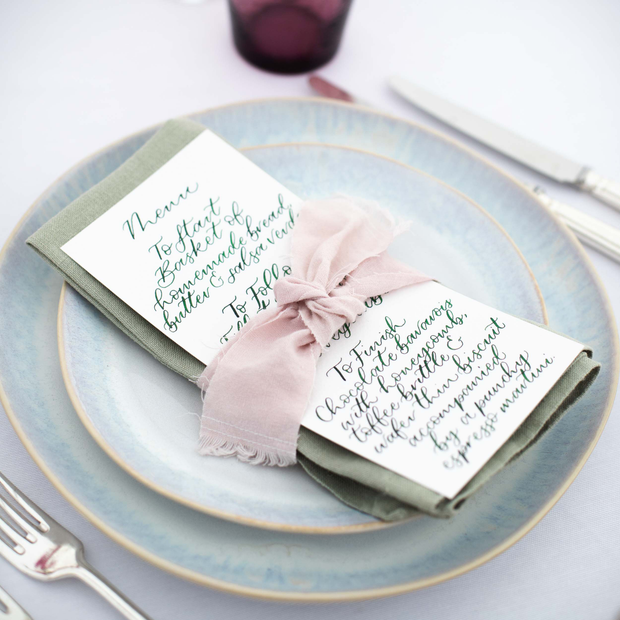 Menu
To Start
Basket of
homemade bread
butter & salsa verde
To Follow
To Finish
Chocolate bavarois
with honeycomb,
toffee brittle &
wafer thin biscuit
accompanied
by a punchy
espresso martini.